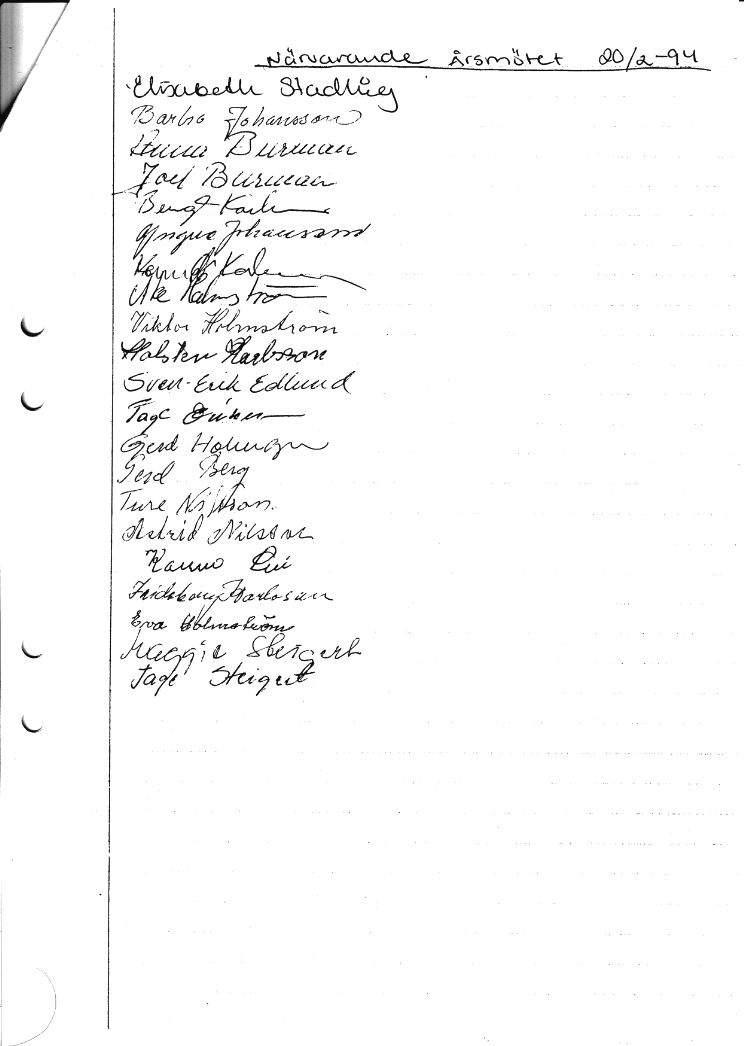 Närvarande årsmötet 20/2-94
Elisabeth
Barbro Johansson
Anna Burman
Joel Burman
Bengt
Yngve Johansson
Viktor Holmström
Holsten Karlsson
Sven-Erik Edlund
Tage
Gerd Holmgren
Gerd Berg
Ture Nilsson
Astrid Nilsson
Fridsborg Karlsson
Eva Holmström
Maggie Steigert
Tage Steigert